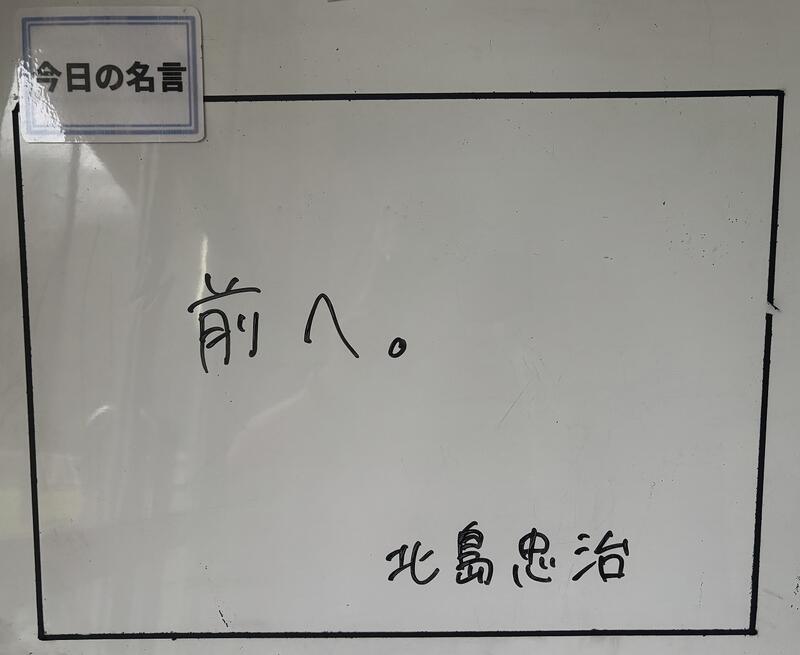 今日の名言
前へ。
北島忠治